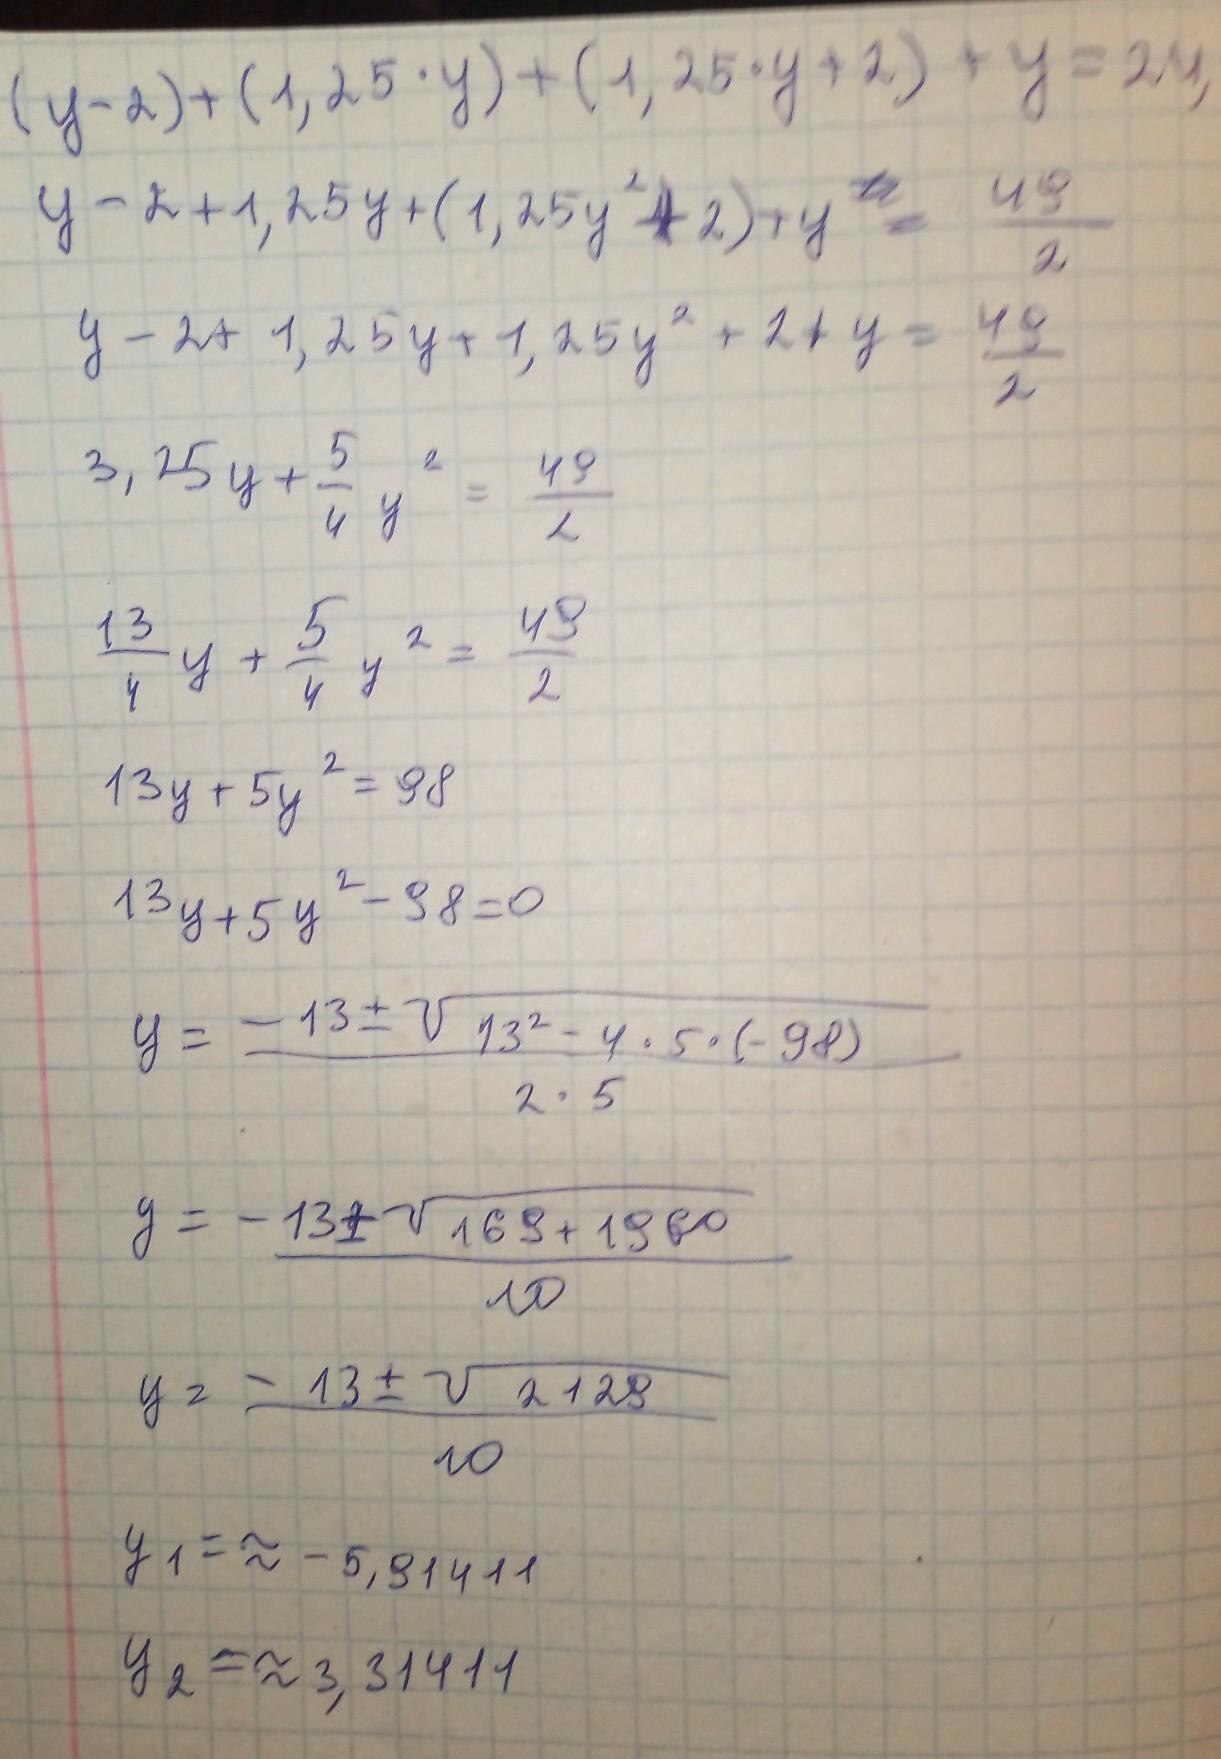 (y-2)+(1,25·y)+(1,25·y+2)+y=24,
y-2+1,25y+(1,25y²+2)+y=49/2
y-2+1,25y+1,25y²+2+y=49/2
3,25y+5/4 y²=49/2
13/4 y+5/4 y²=49/2
13y+5y²=98
13y+5y²-98=0
y=(-13±√(13²-4·5·(-98)))/(2·5)
y=-(13±√(169+1960))/10
y=(-13±√2129)/10
y₁=≈-5,91411
y₂=≈3,31411